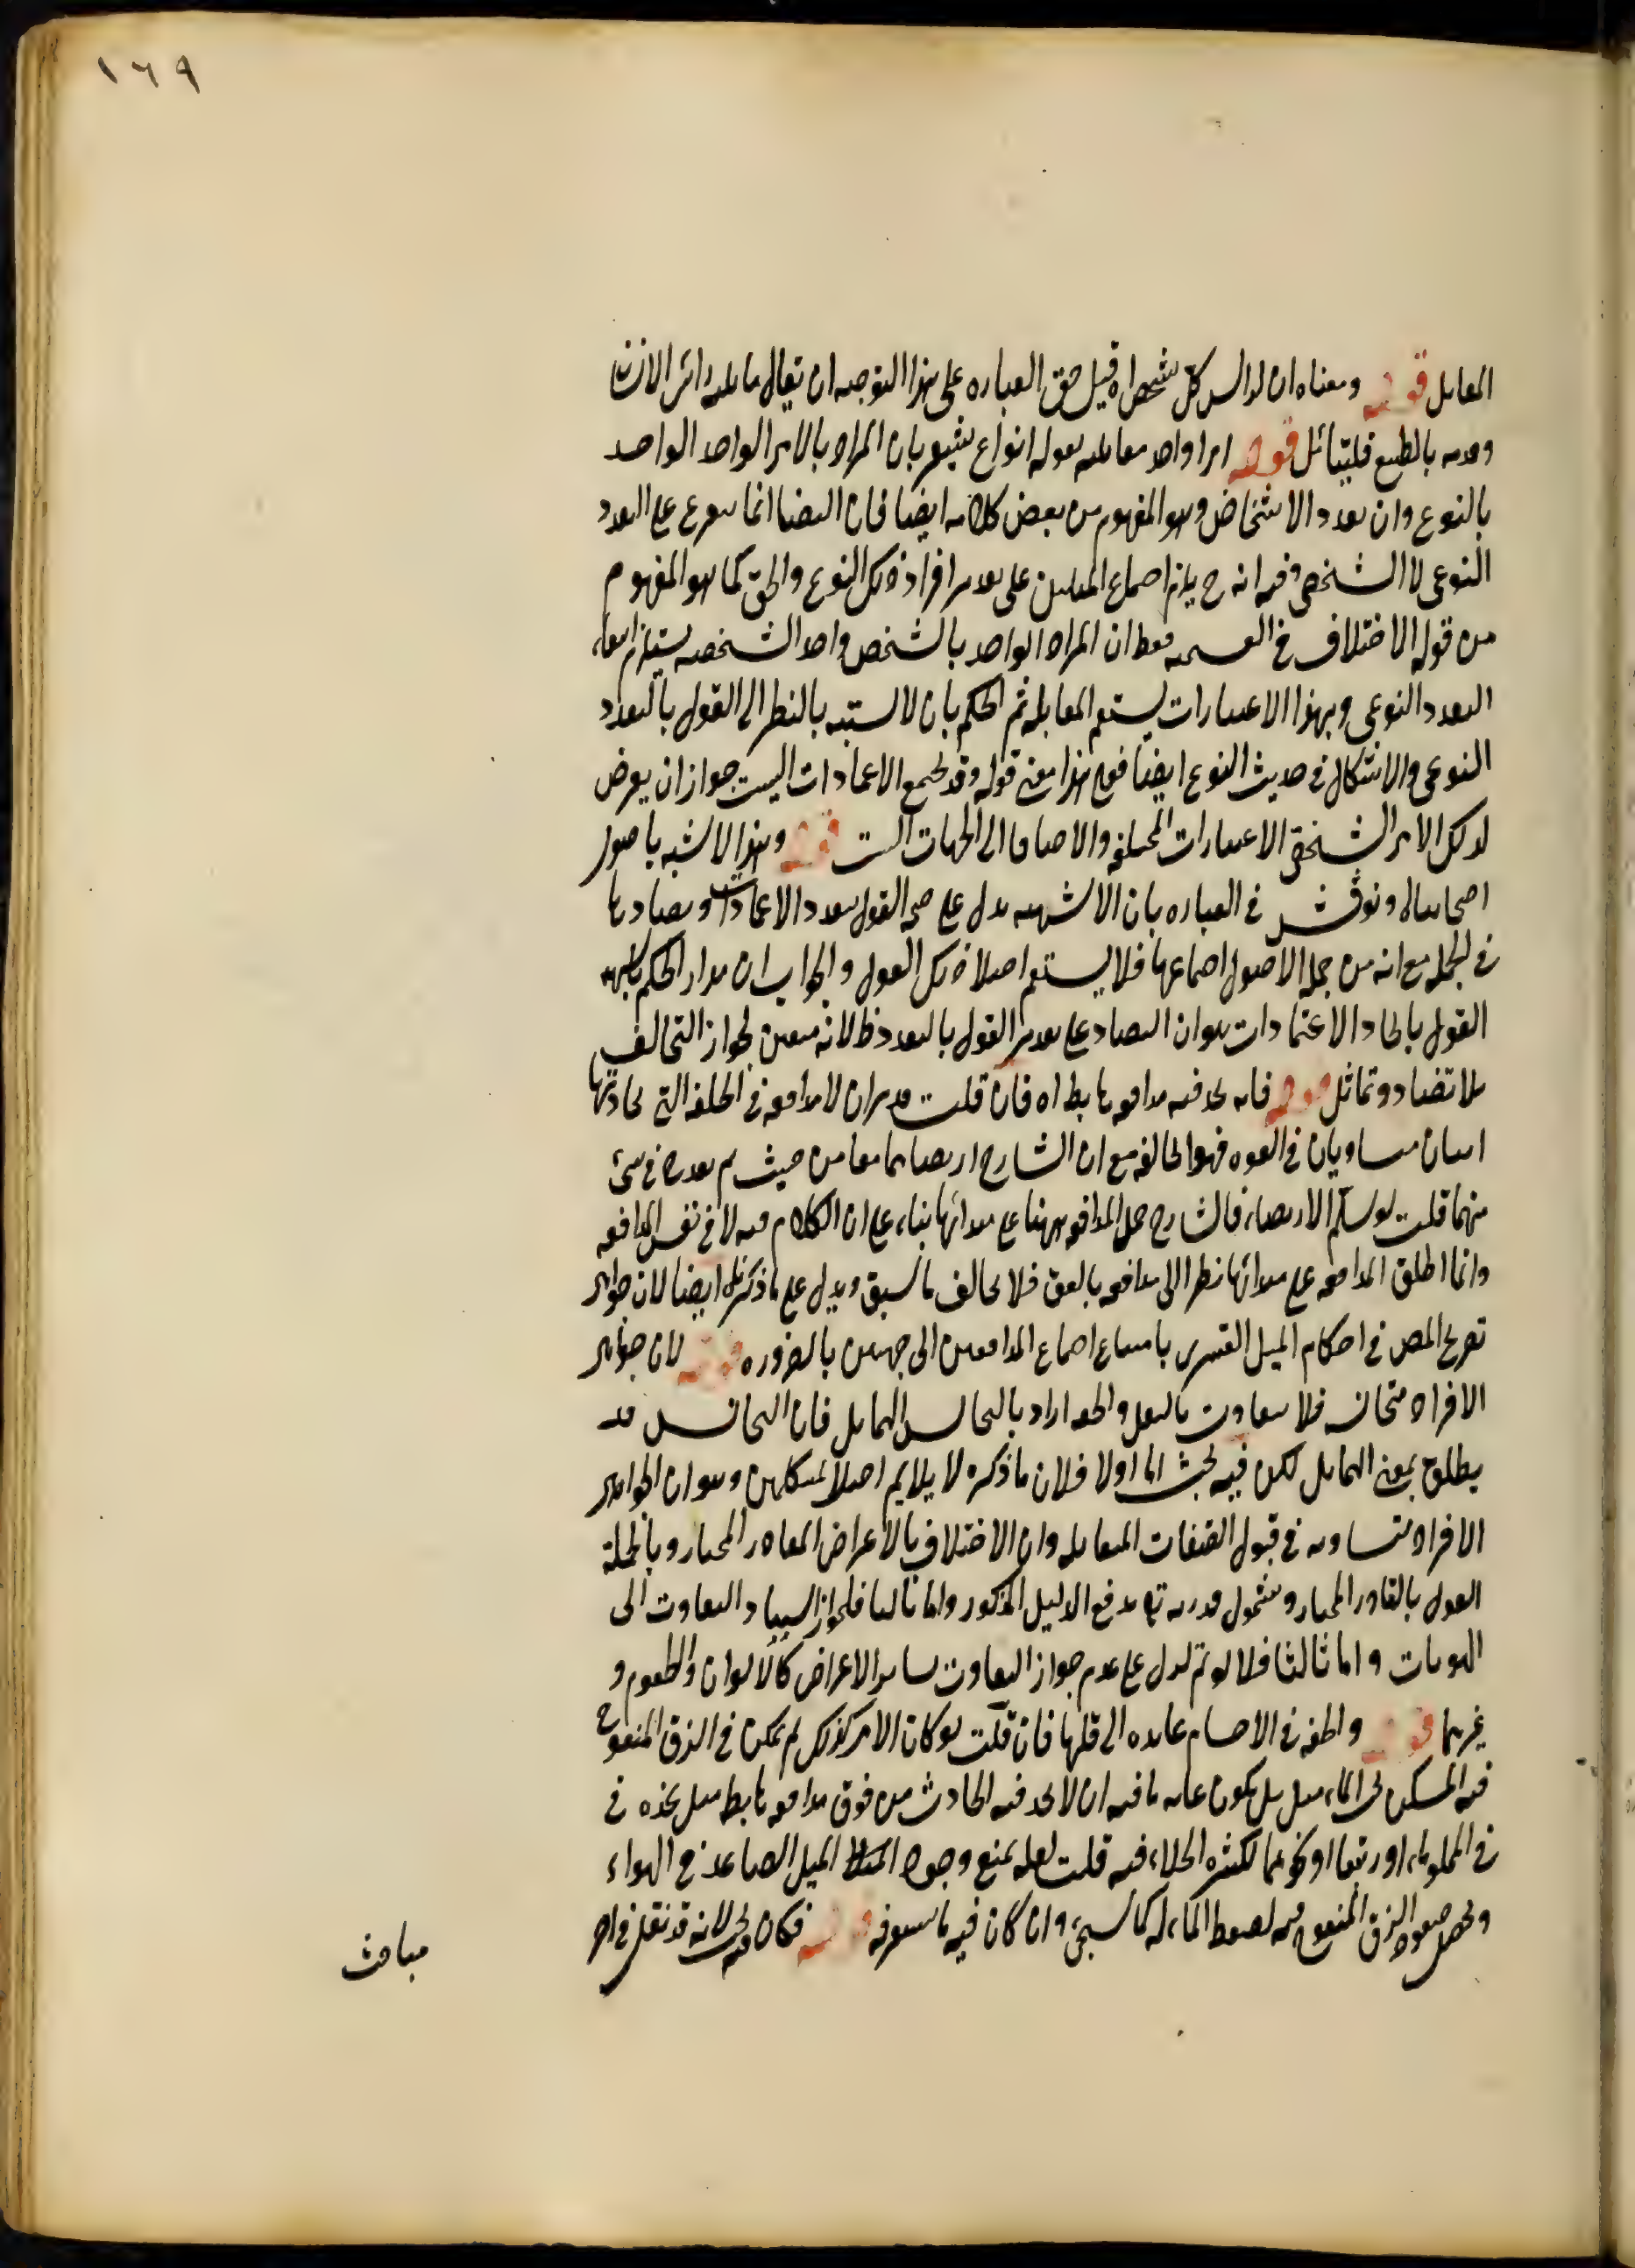 ١٦٩
المقابل قوله ومعناه ان لو اليس كل شخص اه قيل حق العباره على هذا التوجيه ان يقال ما يلى راس الانسان
وقدمه بالطبع فليتأمل قوله امرا واحد مقابله بقوله انواع يشعر بان المراد بالامر الواحد الواحد
بالنوع وان تعدد الاشخاص وهو المفهوم من بعض كلامه ايضا فان التضا انما يتفرع على التعدد
النوعى لا الشخصى وفيه انه ح يلزم اجتماع المثلين على تقدير افراد ذلك النوع والحق كما هو المفهوم
من قوله الاختلاف فى التسميه فقط ان المراد الواحد بالشخص واحد الشخصيه يستلزم انتفاء
التعدد النوعى وبهذا الاعتبارات يستقيم المقابله ثم الحكم بان لا يشتبه بالنظر الى القول بالتعدد
النوعى والاشكال فى حديث النوع ايضا فعلى هذا معنى قوله وقد يجمع الاعتمادات الست جواز ان يعرض
لذلك الامر الشخصى الاعتبارات المختلفه والاضافا الى الجهات الست قوله وهذا الاشبه باصول
اصحابنا اه ونوقش فى العباره بان الاشبهيه يدل على صحه القول بتعدد الاعتمادات وتضادها
فى الجمله مع انه من جمله الاصول اجتماعها فلا يستقيم اصلا ذلك القول والجواب ان مدار الحكم باشبهيه
القول باتحاد الاعتمادات هو ان التضاد على تقدير القول بالتعدد ظ لانه متعين لجواز التخالف
بلا تضاد وتماثل قوله فانه يجد فيه مدافعه هابطه اه فان قلت قد مر ان لا مدافعه فى الحلقه التى يجاذبها
اثنان متساويان فى القوه فهو يخالفه مع ان الشارح ارتضاهما معا من حيث لم يقدح فى شئ
منهما قلت لو سلم الارتضاء فالشارح حمل المدافعه ههنا على مبدأها بناء على ان الكلام فيه لا فى نفس المدافعه
وانما اطلق المدافعه على مبدأها نظرا الى مدافعه بالقوه فلا يخالف ما سبق ويدل على ما ذكرنا ايضا لان جواهر
تصريح المص فى احكام الميل القسرى بامتناع اجتماع المدافعين الى جهتين بالضروره قوله لان جواهر
الافراد متجانسه فلا يتفاوت بالثقل والخفه اراد بالتجانس التماثل فان التجانس قد
يطلق بمعنى التماثل لكن فيه بحث اما اولا فلان ما ذكره لا يلايم اصل المتكلمين وهو ان الجواهر
الافراد متساويه فى قبول الصفات المتقابله وان الاختلاف بالاعراض للقادر المختار وبالجملة
القول بالقادر المختار وشمول قدرته تع يدفع الدليل المذكور واما ثانيا فلجواز استناد التفاوت الى
الهويات واما ثالثا فلانه لو تم لدل على عدم جواز التفاوت بساير الاعراض كالالوان والطعوم و
غيرهما قوله والخفه فى الاجسام عايده الى قلتها فان قلت لو كان الامر كذلك لم يمكن فى الزق المنفوخ
فيه المسكن تحت الماء ميل بل يكون غايه ما فيه ان لا يجد فيه الحادث من فوق مدافعه هابطه بل يجده فى
فى المملو ماء او زيبقا او نحوهما لكثره الخلاء فيه قلت لعله يمنع وجود الميل الصاعد فى الهواء
ويجعل صعود الزق المنفوخ فيه لضغط الماء له كما سيجئ وان كان فيه ما ستعرفه قوله فكان فيه بحث لانه قد نقل فى اخر
مباحث